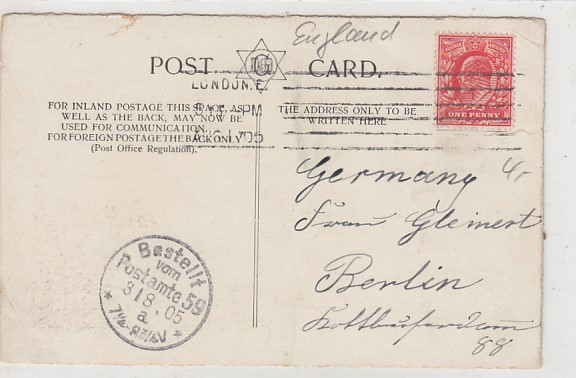 England
POST CARD.
LONDON.E.
FOR INLAND POSTAGE THIS SPACE, AS
WELL AS THE BACK, MAY NOW BE
USED FOR COMMUNICATION.
FOR FOREIGN POSTAGE THE BACK ONLY
(Post Office Regulation).
PM
05
THE ADDRESS ONLY TO BE
WRITTEN HERE
POSTAGE REVENUE
ONE PENNY
Germany
Frau Gleinert
Berlin
Kottbuserdamm
88
Bestellt
vom
Postamte 59
3/8.05
a
V